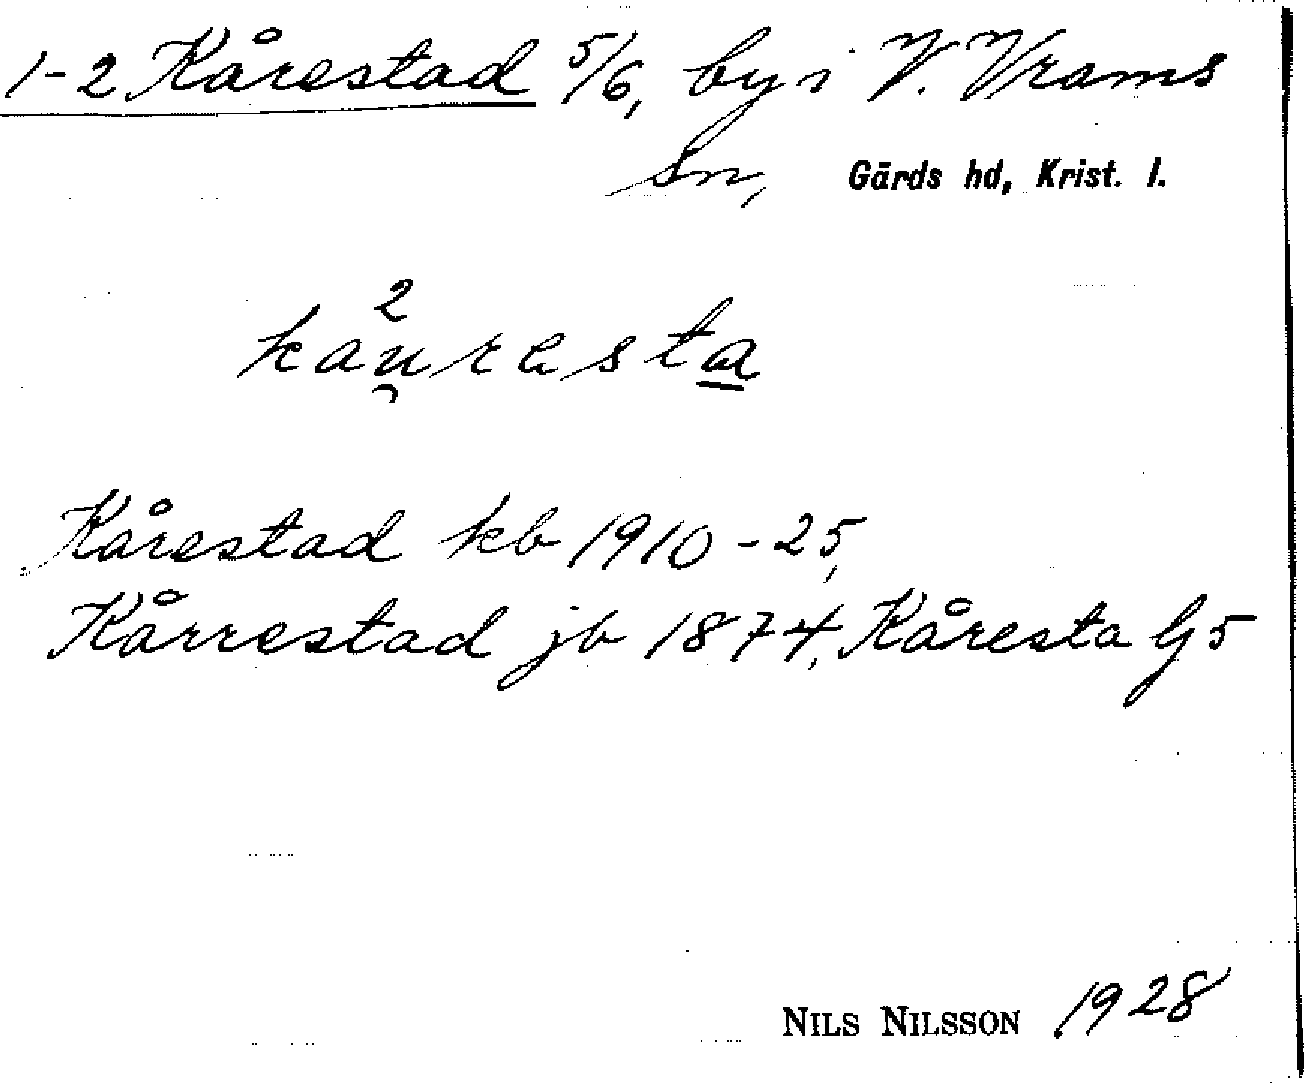 1-2 Kårestad 5/6, by i V. Vrams
Sn, Gärds hd, Krist. l.
kau̯²resta
Kårestad kb 1910-25,
Kårrestad jb 1874, Kåresta G5
NILS NILSSON 1928